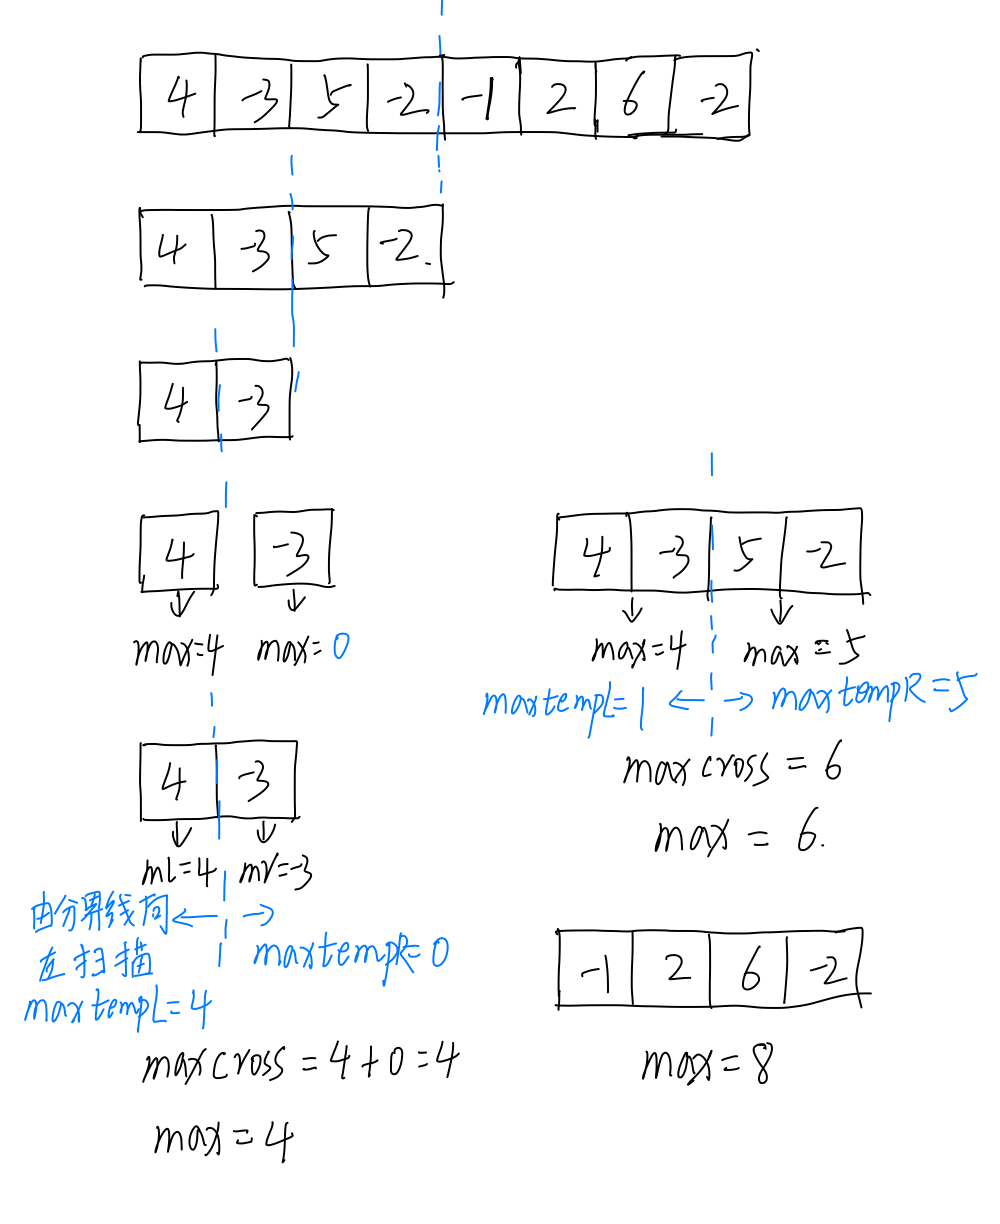 4 -3 5 -2 -1 2 6 -2
4 -3 5 -2.
4 -3
4 -3
max=4 max=0
4 -3
mL=4 mr=-3
由分界线向
左扫描
maxtempL=4
maxtempR=0
maxcross=4+0=4
max=4
4 -3 5 -2
max=4 max=5
maxtempL=1 maxtempR=5
maxcross=6
max=6.
-1 2 6 -2
max=8